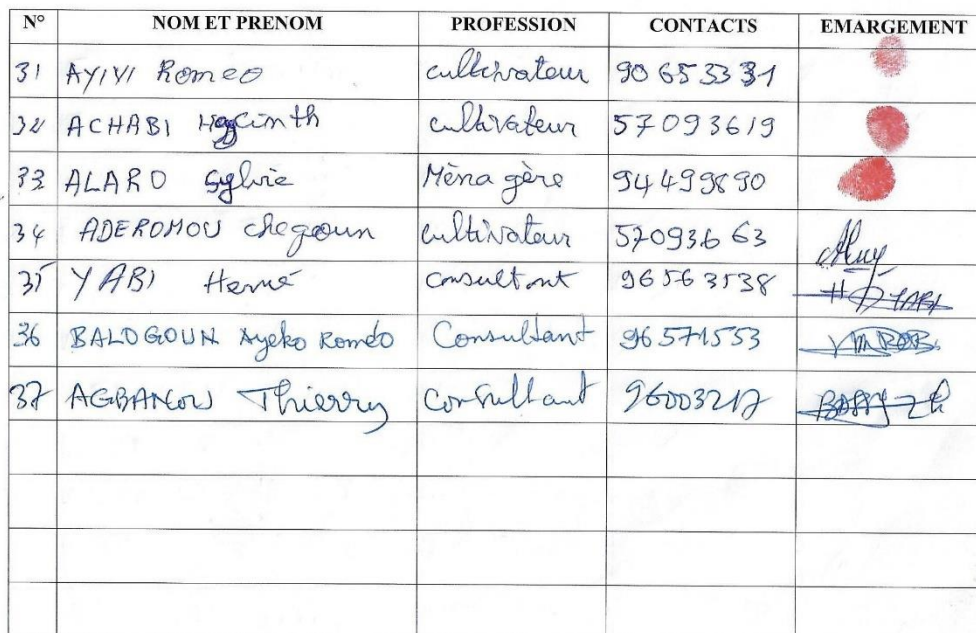 N° NOM ET PRENOM PROFESSION CONTACTS EMARGEMENT
31 AYIVI Romeo cultivateur 90653331
32 ACHABI Hyacinth cultivateur 57093619
33 ALARO Sylvie Ménagère 94499890
34 ADEROMOU chegoun cultivateur 57093663
35 YABI Hervé consultant 96563538
36 BALOGOUN Ayeko Roméo Consultant 96571553
37 AGBANCOU Thierry Consultant 96003217